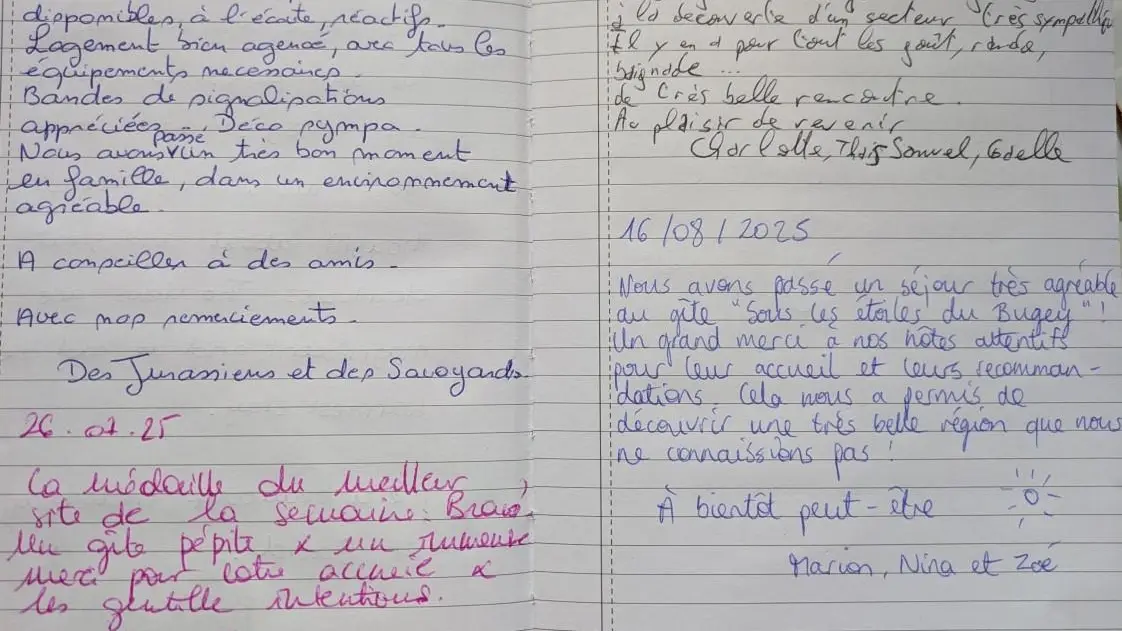 disponibles, à l'écoute, réactifs.
Logement bien agencé, avec tous les
équipements necessaires.
Bandes de signalisations
appréciées... Déco sympa.
Nous avons passé un très bon moment
en famille, dans un environnement
agréable.
A conseiller à des amis.
Avec nos remerciements.
Des Jurassiens et des Savoyards
26.07.25
La médaille du meilleur
site de la semaine. Bravo,
Un gîte pépite x un immense
merci pour votre accueil x
les gentille intentions.
à la découverte d'un secteur très sympathique
Il y en a pour tout les goût, rando,
baignade ...
de très belle rencontre.
Au plaisir de revenir
Charlotte, Samuel,
16/08/2025
Nous avons passé un séjour très agréable
au gîte "Sous les étoiles du Bugey" !
Un grand merci à nos hôtes attentifs
pour leur accueil et leurs recomman-
dations. Cela nous a permis de
découvrir une très belle région que nous
ne connaissions pas !
À bientôt peut-être
Marion, Nina et Zoé